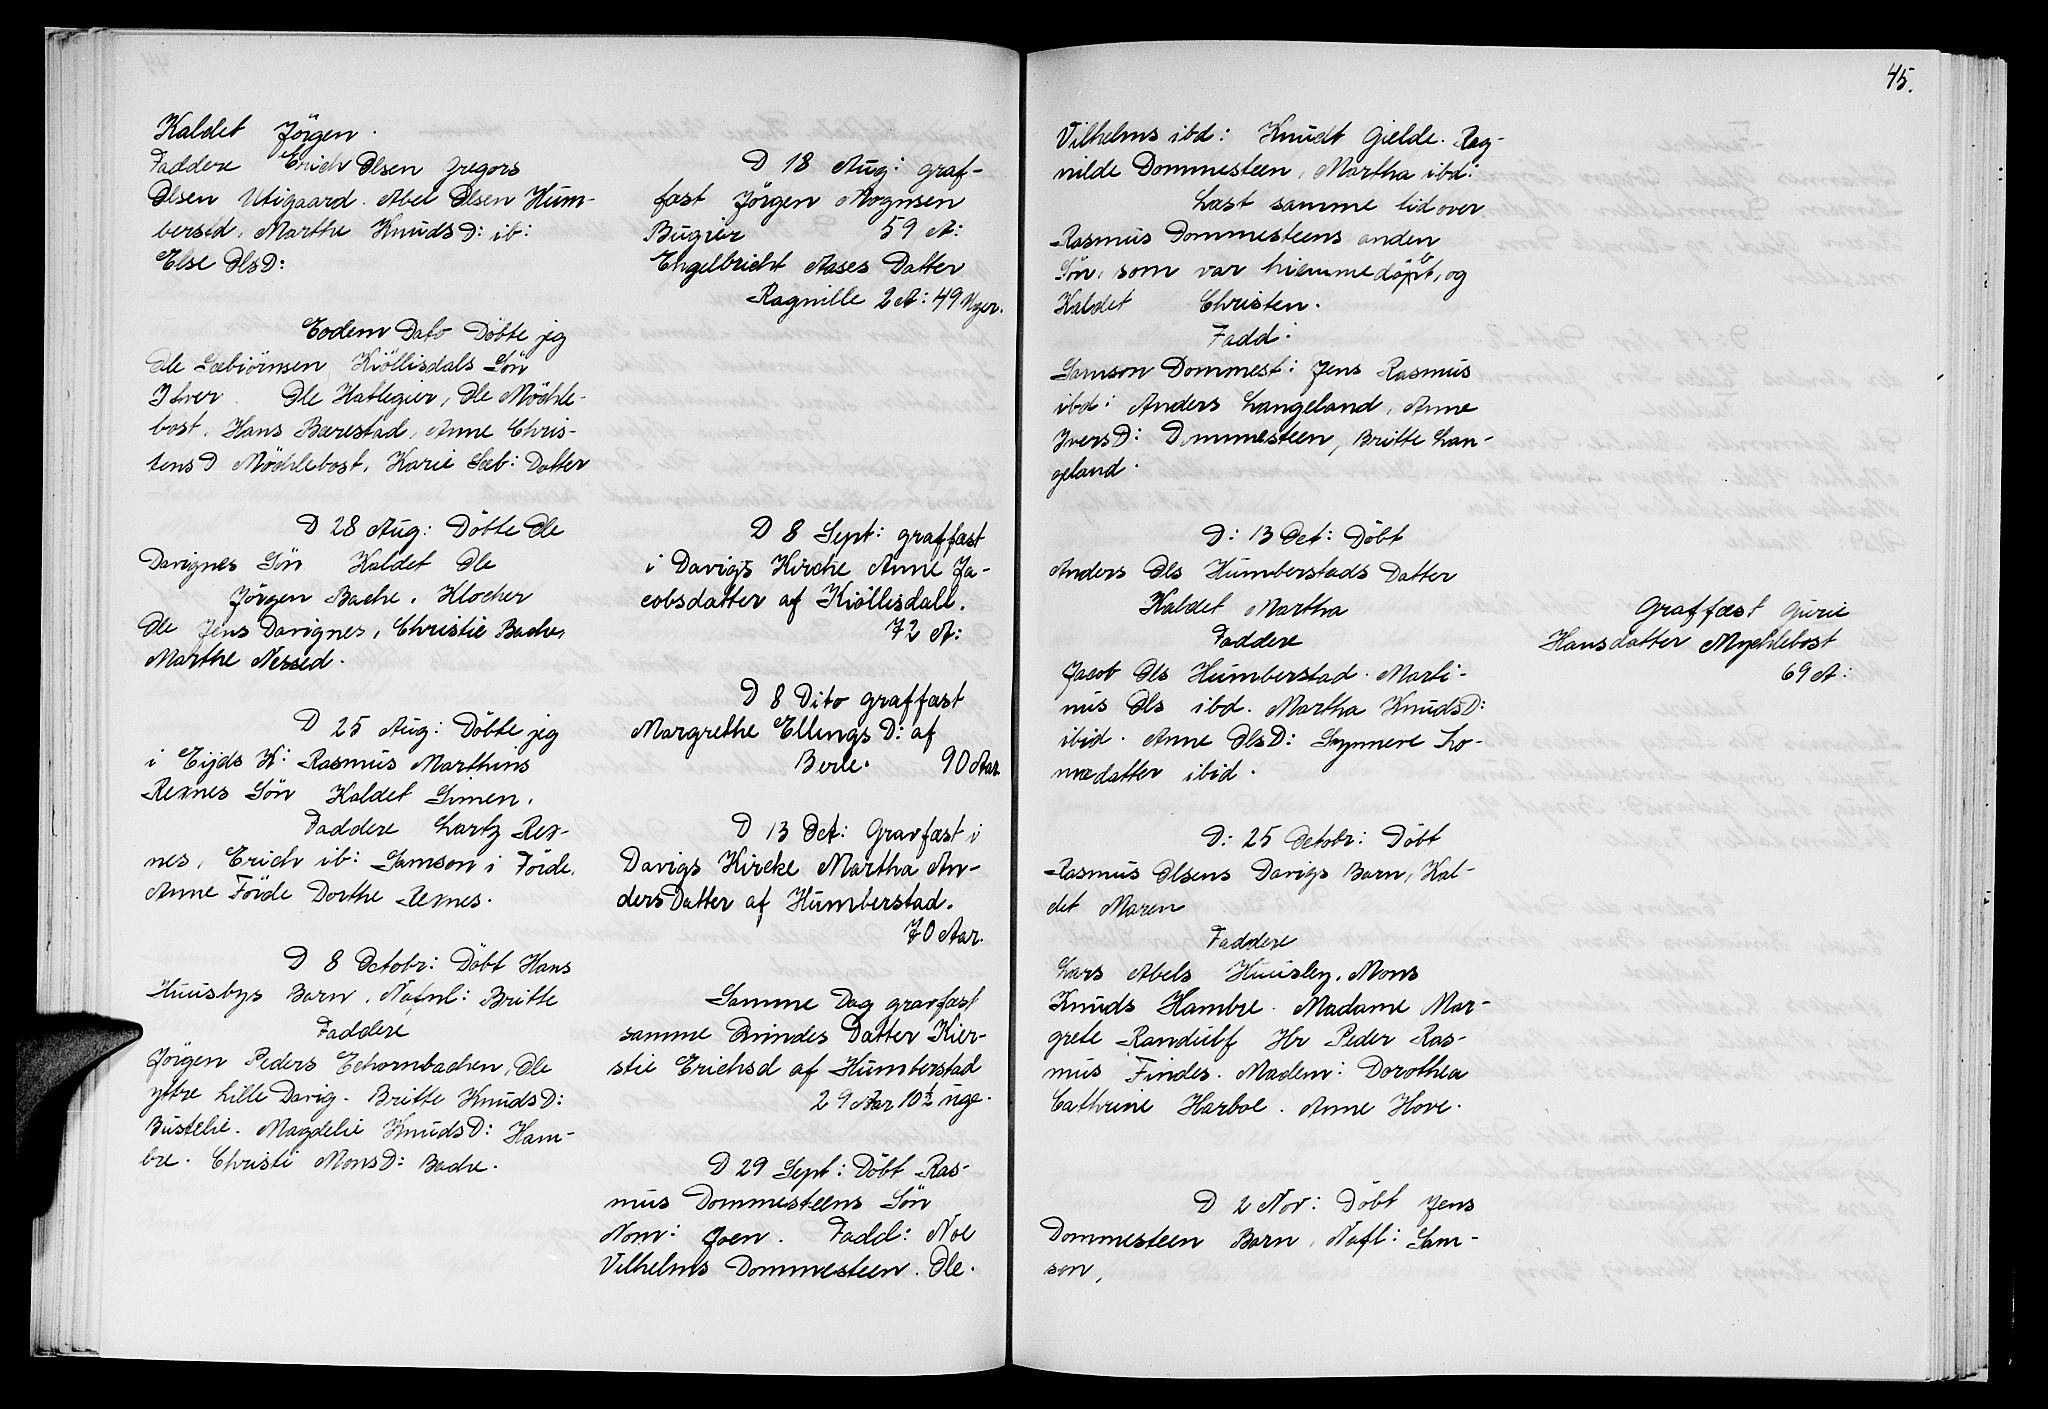 Kaldet Jörgen.
Faddere Erich Olsen Gregors
Olsen Utigaard. Abel Olsen Hum-
berstd, Marthe KnudsD: ib:
Else OlsD:
Eodem Dato Döbte jeg
Ole Sæbiörnsen Kiöllisdals Sön
Itver. Ole Hatlegier, Ole Möchle-
bost, Hans Bærestad, Anne Chris-
tensD Möchlebost, Karie Sæb: Datter
D 28 Aug: Döbte Ole
Davignes Sön Kaldet Ole
Jörgen Bache, Klocher
Ole Jens Davignes, Christie Bache,
Marthe Nessed.
D 25 Aug: Döbte jeg
i Eijds K: Rasmus Marthins
Rexnes Sön Kaldet Simen,
Faddere Lartz Rex-
nes, Erich ib: Samson i Förde,
Anne Förde Dorthe Rexnes.
D 8 Octobr: Döbt Hans
Huusbys Barn, Nafnl: Britte
Faddere
Jörgen Peders Echornbachen, Ole
yttre Lille Davig. Britte KnudsD:
Bustelie. Magdelie KnudsD: Ham-
bre. Christi MonsD: Bache.
D 18 Aug: graf-
fæst Jörgen Mognsen
Bugier 59 A:
Engelbricht Aases Datter
Ragnille 2 A: 49 Uger.
D 8 Sept: graffæst
i Davigs Kirche Anne Ja-
cobsdatter af Kiöllisdall.
72 A:
D 8 Dito graffæst
Margrethe Ellings D: af
Berle. 90 Aar
D 13 Oct: Gravfæst i
Davigs Kircke Martha An-
dersDatter af Humberstad.
70 Aar.
Samme Dag gravfæst
samme Qvindes Datter Kier-
stie Erichsd af Humberstad
29 Aar 10½ uge.
D 29 Sept: Döbt Ras-
mus Dommesteens Sön
Nom: Joen. Fadd: Noe
Vilhelms Dommesteen. Ole.
45.
Vilhelms ibd: Knudt Gielde. Rag-
nilde Dommesteen, Martha ibd:
Læst samme tid over
Rasmus Dommesteens anden
Sön, som var hiemmedöbt, og
Kaldet Christen.
Fadd:
Samson Dommest: Jens Rasmus
ibd: Anders Langeland, Anne
IversD: Dommesteen, Britte Lan-
geland.
D: 13 Oct: Döbt
Anders Ols Humberstads Datter
Kaldet Martha
Faddere
Jacob Ols Humberstad. Marti-
nus Ols ibd. Martha KnudsD:
ibid. Anne OlsD: Synneve Lo-
nædatter ibid.
D: 25 Octobr: Döbt
Rasmus Olsens Davigs Barn, Kal-
det Maren
Faddere
Lars Abels Huusby, Mons
Knuds Hambre. Madame Mar-
grete Randulf Hr Peder Ras-
mus Findes. Madem: Dorothea
Cathrine Harboe. Anne Hove.
D 2 Nov: Döbt Jens
Dommesteen Barn, Nafl: Sam-
son,
Graffæst Gurie
Hansdatter Mychlebost
69 A: